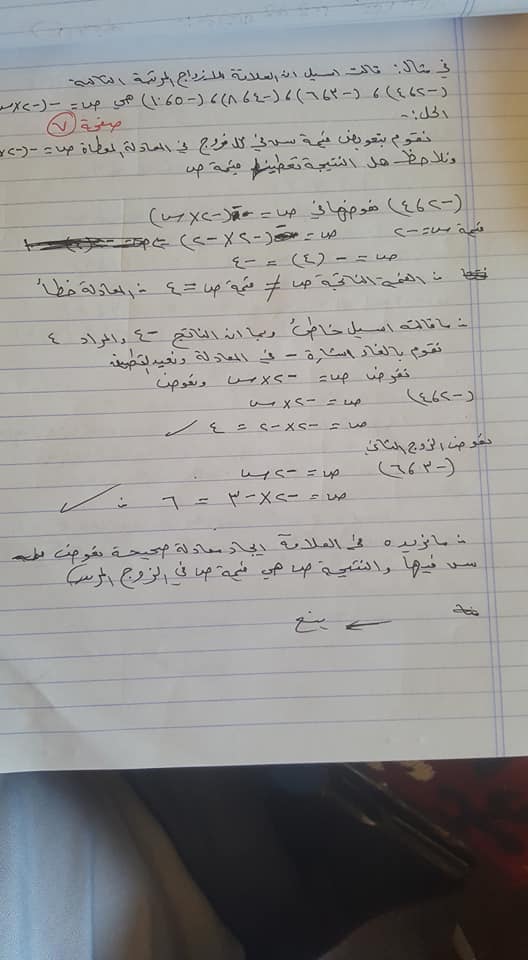 في مثال: قالت اسيل ان العلاقة للأزواج المرتبة التالية
(-٢،٤)، (-٣،٦)، (-٤،٨)، (-٥،١٠) هي ص = -(-٢×س
الحل:-
صفحة ٧
نقوم بتعويض قيمة س في كل زوج في المعادلة المعطاة ص = -(-٢×
ونلاحظ هل النتيجة تعطينا قيمة ص
(-٢،٤) نعوضها في ص = -(-٢×س)
قيمة س = -٢ ص = -(-٢×-٢)
ص = -(٤) = -٤
∴ القيمة الناتجة ص ≠ قيمة ص = ٤ ∴ المعادلة خطأ
∴ ما قالته اسيل خاطئ وبما ان الناتج -٤ والمراد ٤
نقوم بالغاء اشارة - في المعادلة ونعيد التطبيق
نفرض ص = -٢×س ونعوض
(-٢،٤) ص = -٢×س
ص = -٢×-٢ = ٤ ✓
نعوض الزوج الثاني
(-٣،٦) ص = -٢ س
ص = -٢×-٣ = ٦ ∴ ✓
∴ ما نريده في العلاقة ايجاد معادلة صحيحة نعوض
س فيها والنتيجة ص هي قيمة ص في الزوج المرتب)
← يتبع